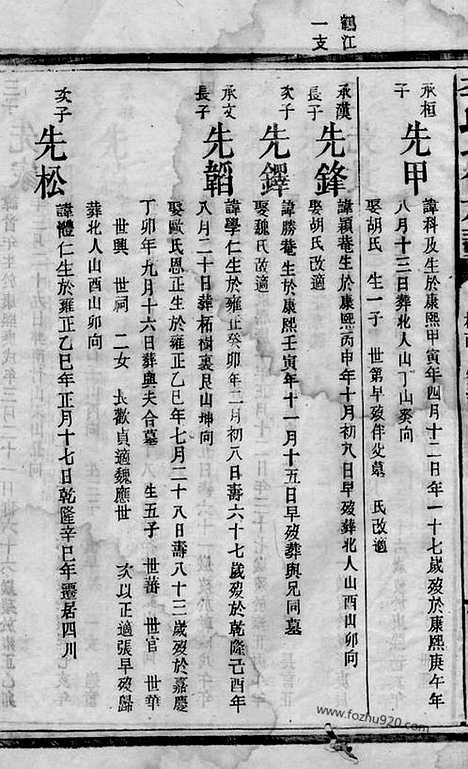 鶴江
一支
承桓
子
先甲
諱科及生於康熙甲寅年四月十二日年一十七歲歿於康熙庚午年
八月十三日葬北人山丁山癸向
娶胡氏 生一子 世第早歿伴父墓 氏改適
承漢
長子
先鋒
諱穎菴生於康熙丙申年十月初九日早歿葬北人山酉山卯向
娶胡氏改適
次子
先鐸
諱勝菴生於康熙壬寅年十一月十五日早歿葬與兄同墓
娶魏氏改適
承文
長子
先韜
諱學仁生於雍正癸卯年二月初八日壽六十七歲歿於乾隆己酉年
八月二十日葬柘樹裏艮山坤向
娶歐氏恩正生於雍正乙巳年七月二十八日壽八十三歲歿於嘉慶
丁卯年九月十六日葬與夫合墓 生五子 世蕃 世官 世華
世興 世祠 二女 長歡貞適魏應世 次以正適張早歿歸
葬北人山酉山卯向
次子
先松
諱體仁生於雍正乙巳年正月十七日乾隆辛巳年遷居四川
www.fozhu920.com